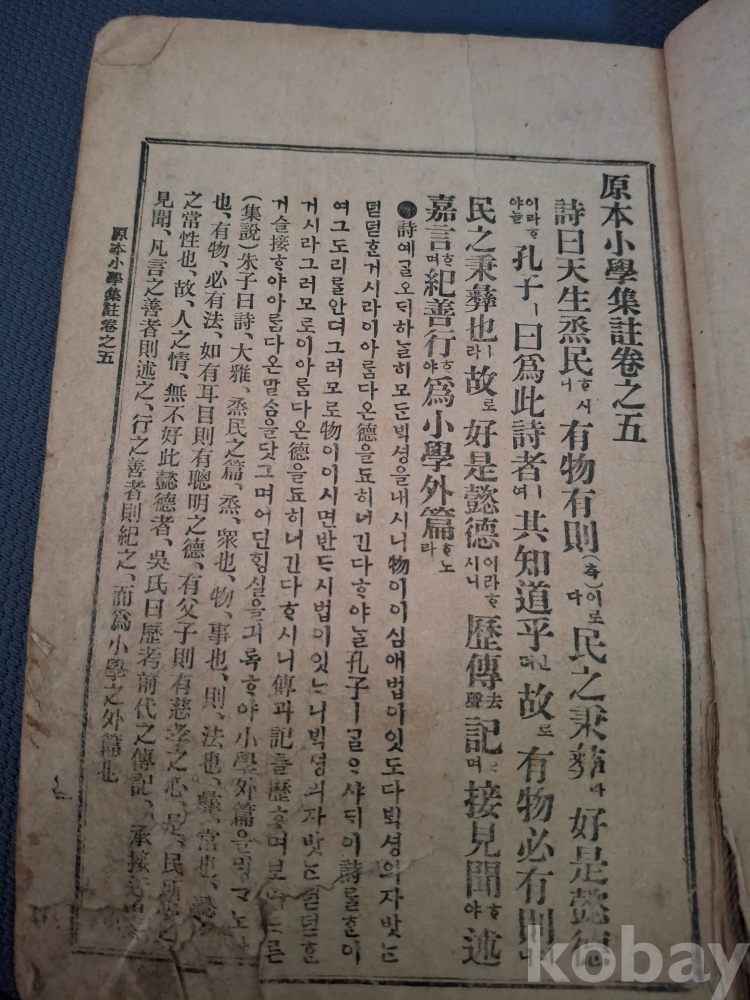 原本小學集註卷之五
詩曰天生烝民ᄒᆞ시니 有物有則(측)이로다 民之秉彝라 好是懿德
이라ᄒᆞ야ᄂᆞᆯ 孔子ㅣ 曰爲此詩者ㅣ여 其知道乎ᅟᅵᆫ뎌 故로 有物必有則
民之秉彝也ㅣ라 故로 好是懿德이라ᄒᆞ시니 歷傳去聲記ᄒᆞ며 接見聞ᄒᆞ야 述
嘉言ᄒᆞ며 紀善行ᄒᆞ야 爲小學外篇ᄒᆞ노라
詩예 ᄀᆞᆯ오ᄃᆡ 하ᄂᆞᆯ히 모든 ᄇᆡᆨ셩을 내시니 物이 이심애 법이 잇도다 ᄇᆡᆨ셩의 자밧ᄂᆞᆫ
덛덛ᄒᆞᆫ 거시라 이 아름다온 德을 됴히 녀긴다 ᄒᆞ야ᄂᆞᆯ 孔子ㅣ ᄀᆞᆯᄋᆞ샤ᄃᆡ 이 詩를 ᄒᆞᆫ이
여 그 도리를 안뎌 그러모로 物이 이시면 반ᄃᆞ시 법이 잇ᄂᆞ니 ᄇᆡᆨ셩의 자밧ᄂᆞᆫ 덛덛ᄒᆞᆫ
거시라 그러모로 이 아름다온 德을 됴히 녀긴다 ᄒᆞ시니 傳과 記를 歷ᄒᆞ며 보 론
거슬 接ᄒᆞ야 아름다온 말ᄉᆞᆷ을 닷그며 어딘 ᄒᆡᆼ실을 긔록ᄒᆞ야 小學外篇을 노
(集說)朱子曰詩、大雅、烝民之篇、烝、衆也、物、事也、則、法也、彝、常也、懿
也、有物、必有法、如有耳目則有聰明之德、有父子則有慈孝之心、是、民所
之常性也、故、人之情、無不好此懿德者、吳氏曰歷考前代之傳記、承接
見聞、凡言之善者則述之、行之善者則紀之、而爲小學之外篇也
原本小學集註卷之五
kobay